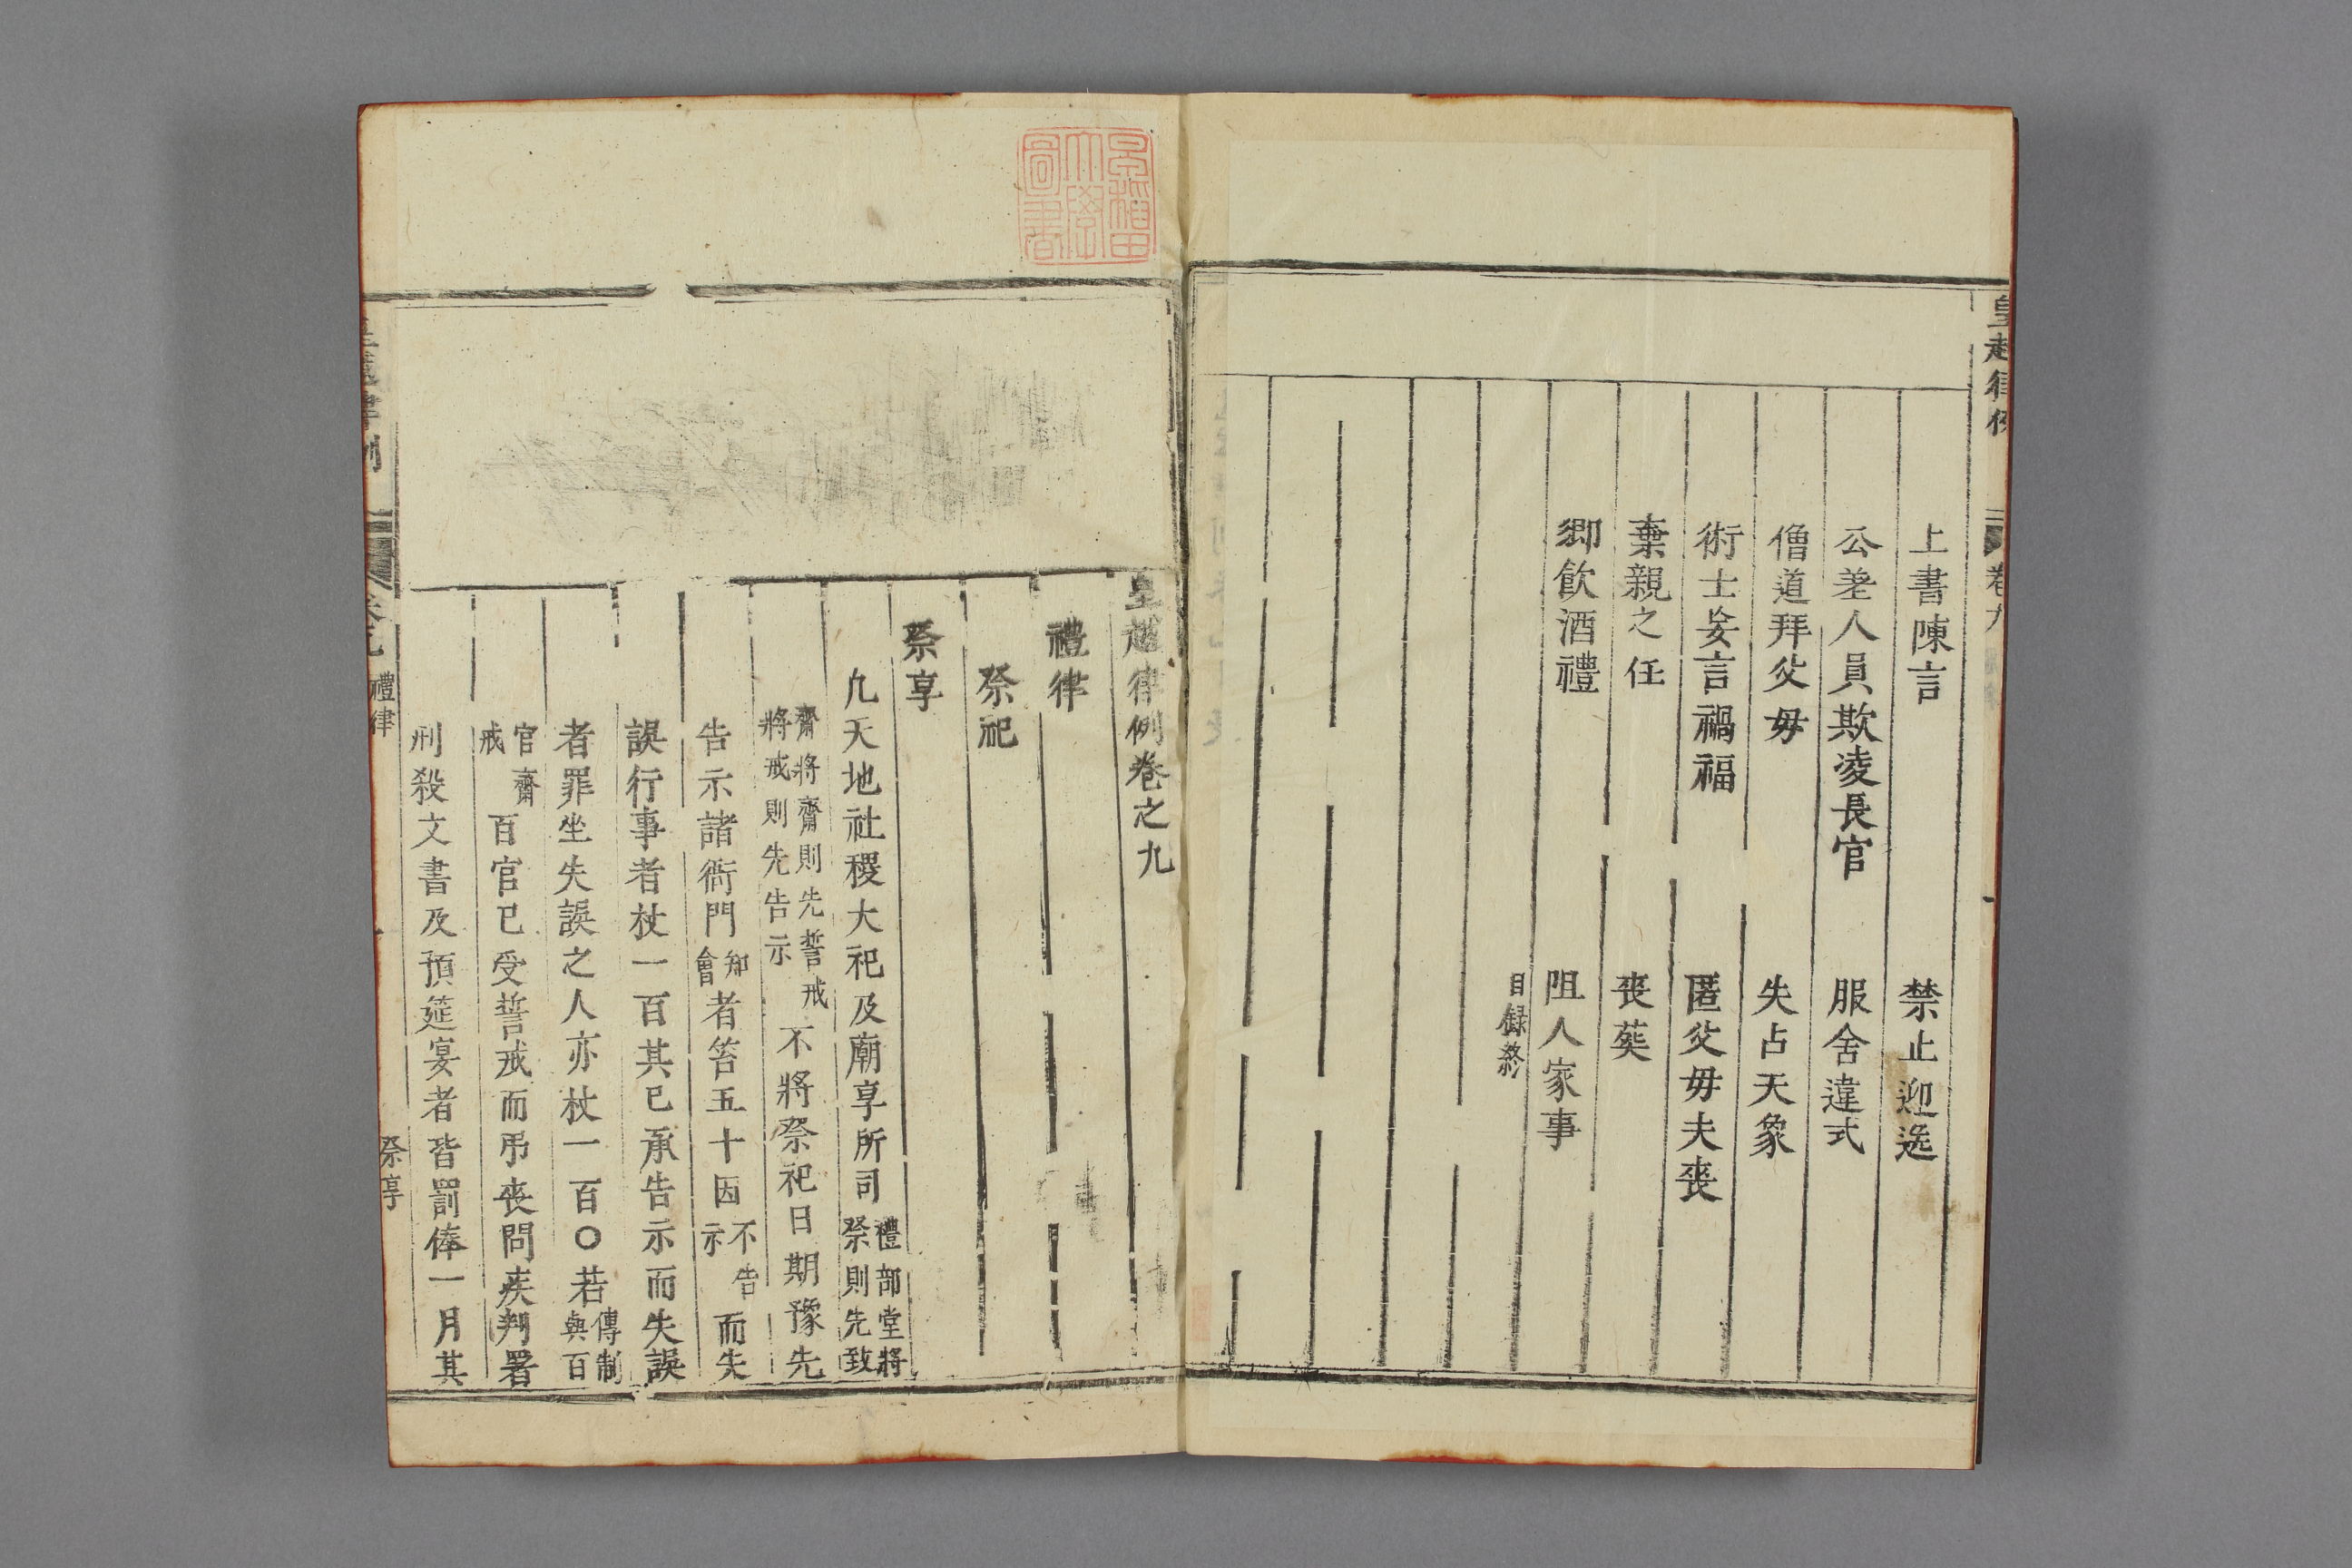 皇越律例 卷九
上書陳言 禁止迎送
公差人員欺凌長官 服舍違式
僧道拜父母 失占天象
術士妄言禍福 匿父母夫喪
棄親之任 喪葬
鄉飲酒禮 阻人家事
目録終
早稲田
大學
圖書
皇越律例卷之九
禮律
祭祀
祭享
凢天地社稷大祀及廟享所司禮部堂將
祭則先致
齋將齋則先誓戒
將戒則先告示不將祭祀日期豫先
告示諸衙門知
會者笞五十因不告
示而失
誤行事者杖一百其已承告示而失誤
者罪坐失誤之人亦杖一百○若傳制
與百
官齋
戒百官已受誓戒而吊喪問疾判署
刑殺文書及預筵宴者皆罰俸一月其
皇越律例 卷九 禮律 祭享